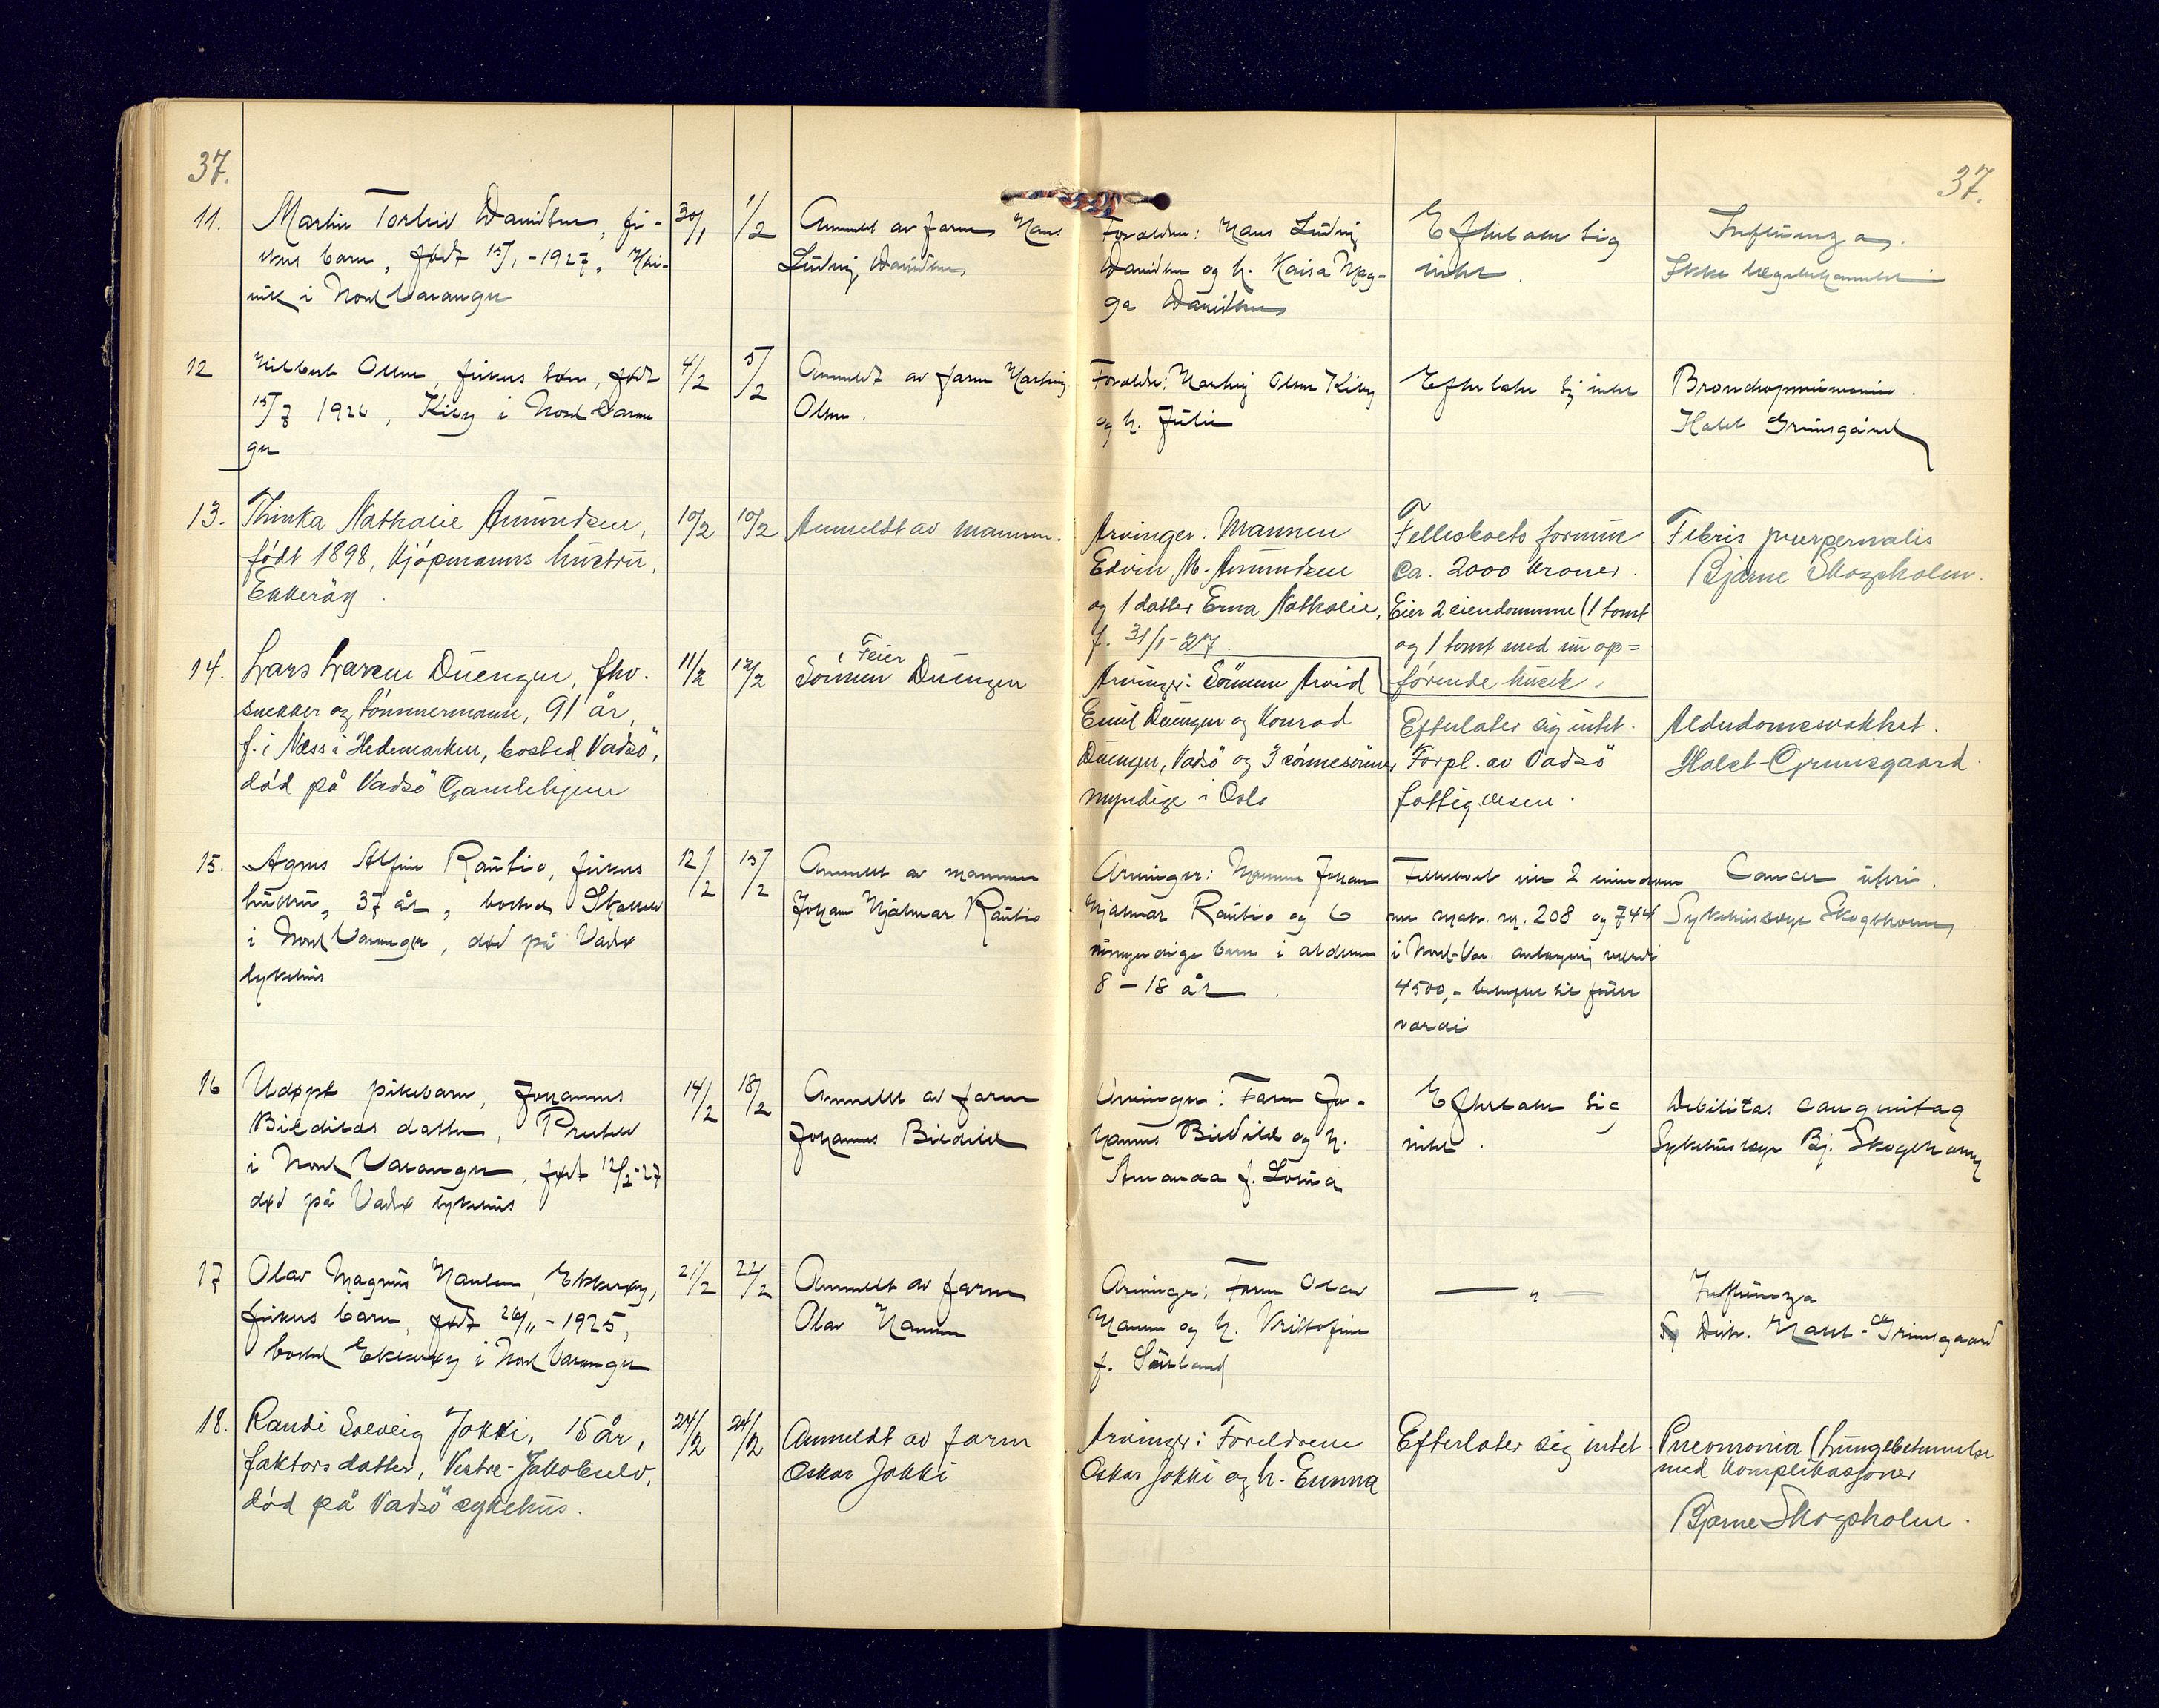 37.
37.
11.
Martin Torleiv Davidsen, fi-
skers barn, født 15/1-1927,
i Nord Varanger
30/1
1/2
Anmeldt av faren Hans
Ludvig Davidsen
Forældre: Hans Ludvig
Davidsen og h. Kaisa Mag-
ga Davidsen
Efterlater sig
intet.
Influenza.
Ikke lægebehandlet
12
Hilbert Olsen, fiskers søn, født
15/7 1926, Kiby i Nord Varan
ger
4/2
5/2
Anmeldt av faren Hartvig
Olsen.
Forældre: Hartvig Olsen Kiby
og h. Julie
Efterlater sig intet
Bronchopneumonie.
Holst Grimsgaard
13.
Thinka Nathalie Amundsen,
født 1898, kjöpmanns hustru,
Ekkeröy.
10/2
10/2
Anmeldt av mannen.
Arvinger: Mannen
Edvin M. Amundsen
og 1 datter Erna Nathalie,
f. 31/1-27.
Felleskoets formue
ca. 2000 kroner.
Eier 2 eiendomme (1 tomt
og 1 tomt med un op=
førende husek.
Febris puerperalis
Bjarne Skogsholm.
14.
Lars Larsen Duengen, fhv.
snekker og tømmermann, 91 år,
f. i Næss i Hedemarken, bosted Vadsö,
död på Vadsö Gamlehjem
11/2
12/2
Feier
Sönnen Duengen
Arvinger: Sönnene Arvid
Emil Duengen og Konrad
Duengen, Vadsö og 3 sönnesönner
myndige i Oslo
Efterlater sig intet.
Forpl. av Vadsö
fattigvesen.
Alderdomssvakhet.
Holst-Grimsgaard.
15.
Agnes Alfine Rautio, fiskers
hustru, 37 år, bosted
i Nord Varanger, død på Vadsø
sykehus
12/2
15/2
Anmeldt av mannen
Johan Hjalmar Rautio
Arvinger: Mannen Johan
Hjalmar Rautio og 6
umyndige barn i alderen
8 - 18 år.
Fellesboet eier 2 eiendom
me matr. nr. 208 og 744
i Nord-Var. antagelig verdi
4500,-
værdi
Cancer uteri.
Sykehuslæge Skogsholm
16
Udøpt pikebarn, Johannes
Bildilds datter,
i Nord Varanger, født 12/2-27
død på Vadsø sykehus
14/2
18/2
Anmeldt av faren
Johannes Bildild
Arvinger: Faren Jo-
hannes Bildild og h.
Amanda f.
Efterlater sig
intet.
Debilitas congenita
Sykehuslæge Bj. Skogsholm
17
Olav Magnus Hansen, Ekkerøy,
fiskers barn, født 26/11-1925,
bosted Ekkerøy i Nord Varanger
21/2
22/2
Anmeldt av faren
Olav Hansen
Arvinger: Faren Olav
Hansen og h. Kristofine
f.
— " —
Influenza
Distr. Holst-Grimsgaard
18.
Randi Solveig Jokki, 15 år,
faktors datter, Vestre-Jakobselv,
död på Vadsö sykehus.
24/2
24/2
Anmeldt av faren
Oskar Jokki
Arvinger: Foreldrene
Oskar Jokki og h. Emma
Efterlater sig intet.
Pneomonia (Lungebetennelse
med komplikasjoner
Bjarne Skogsholm.